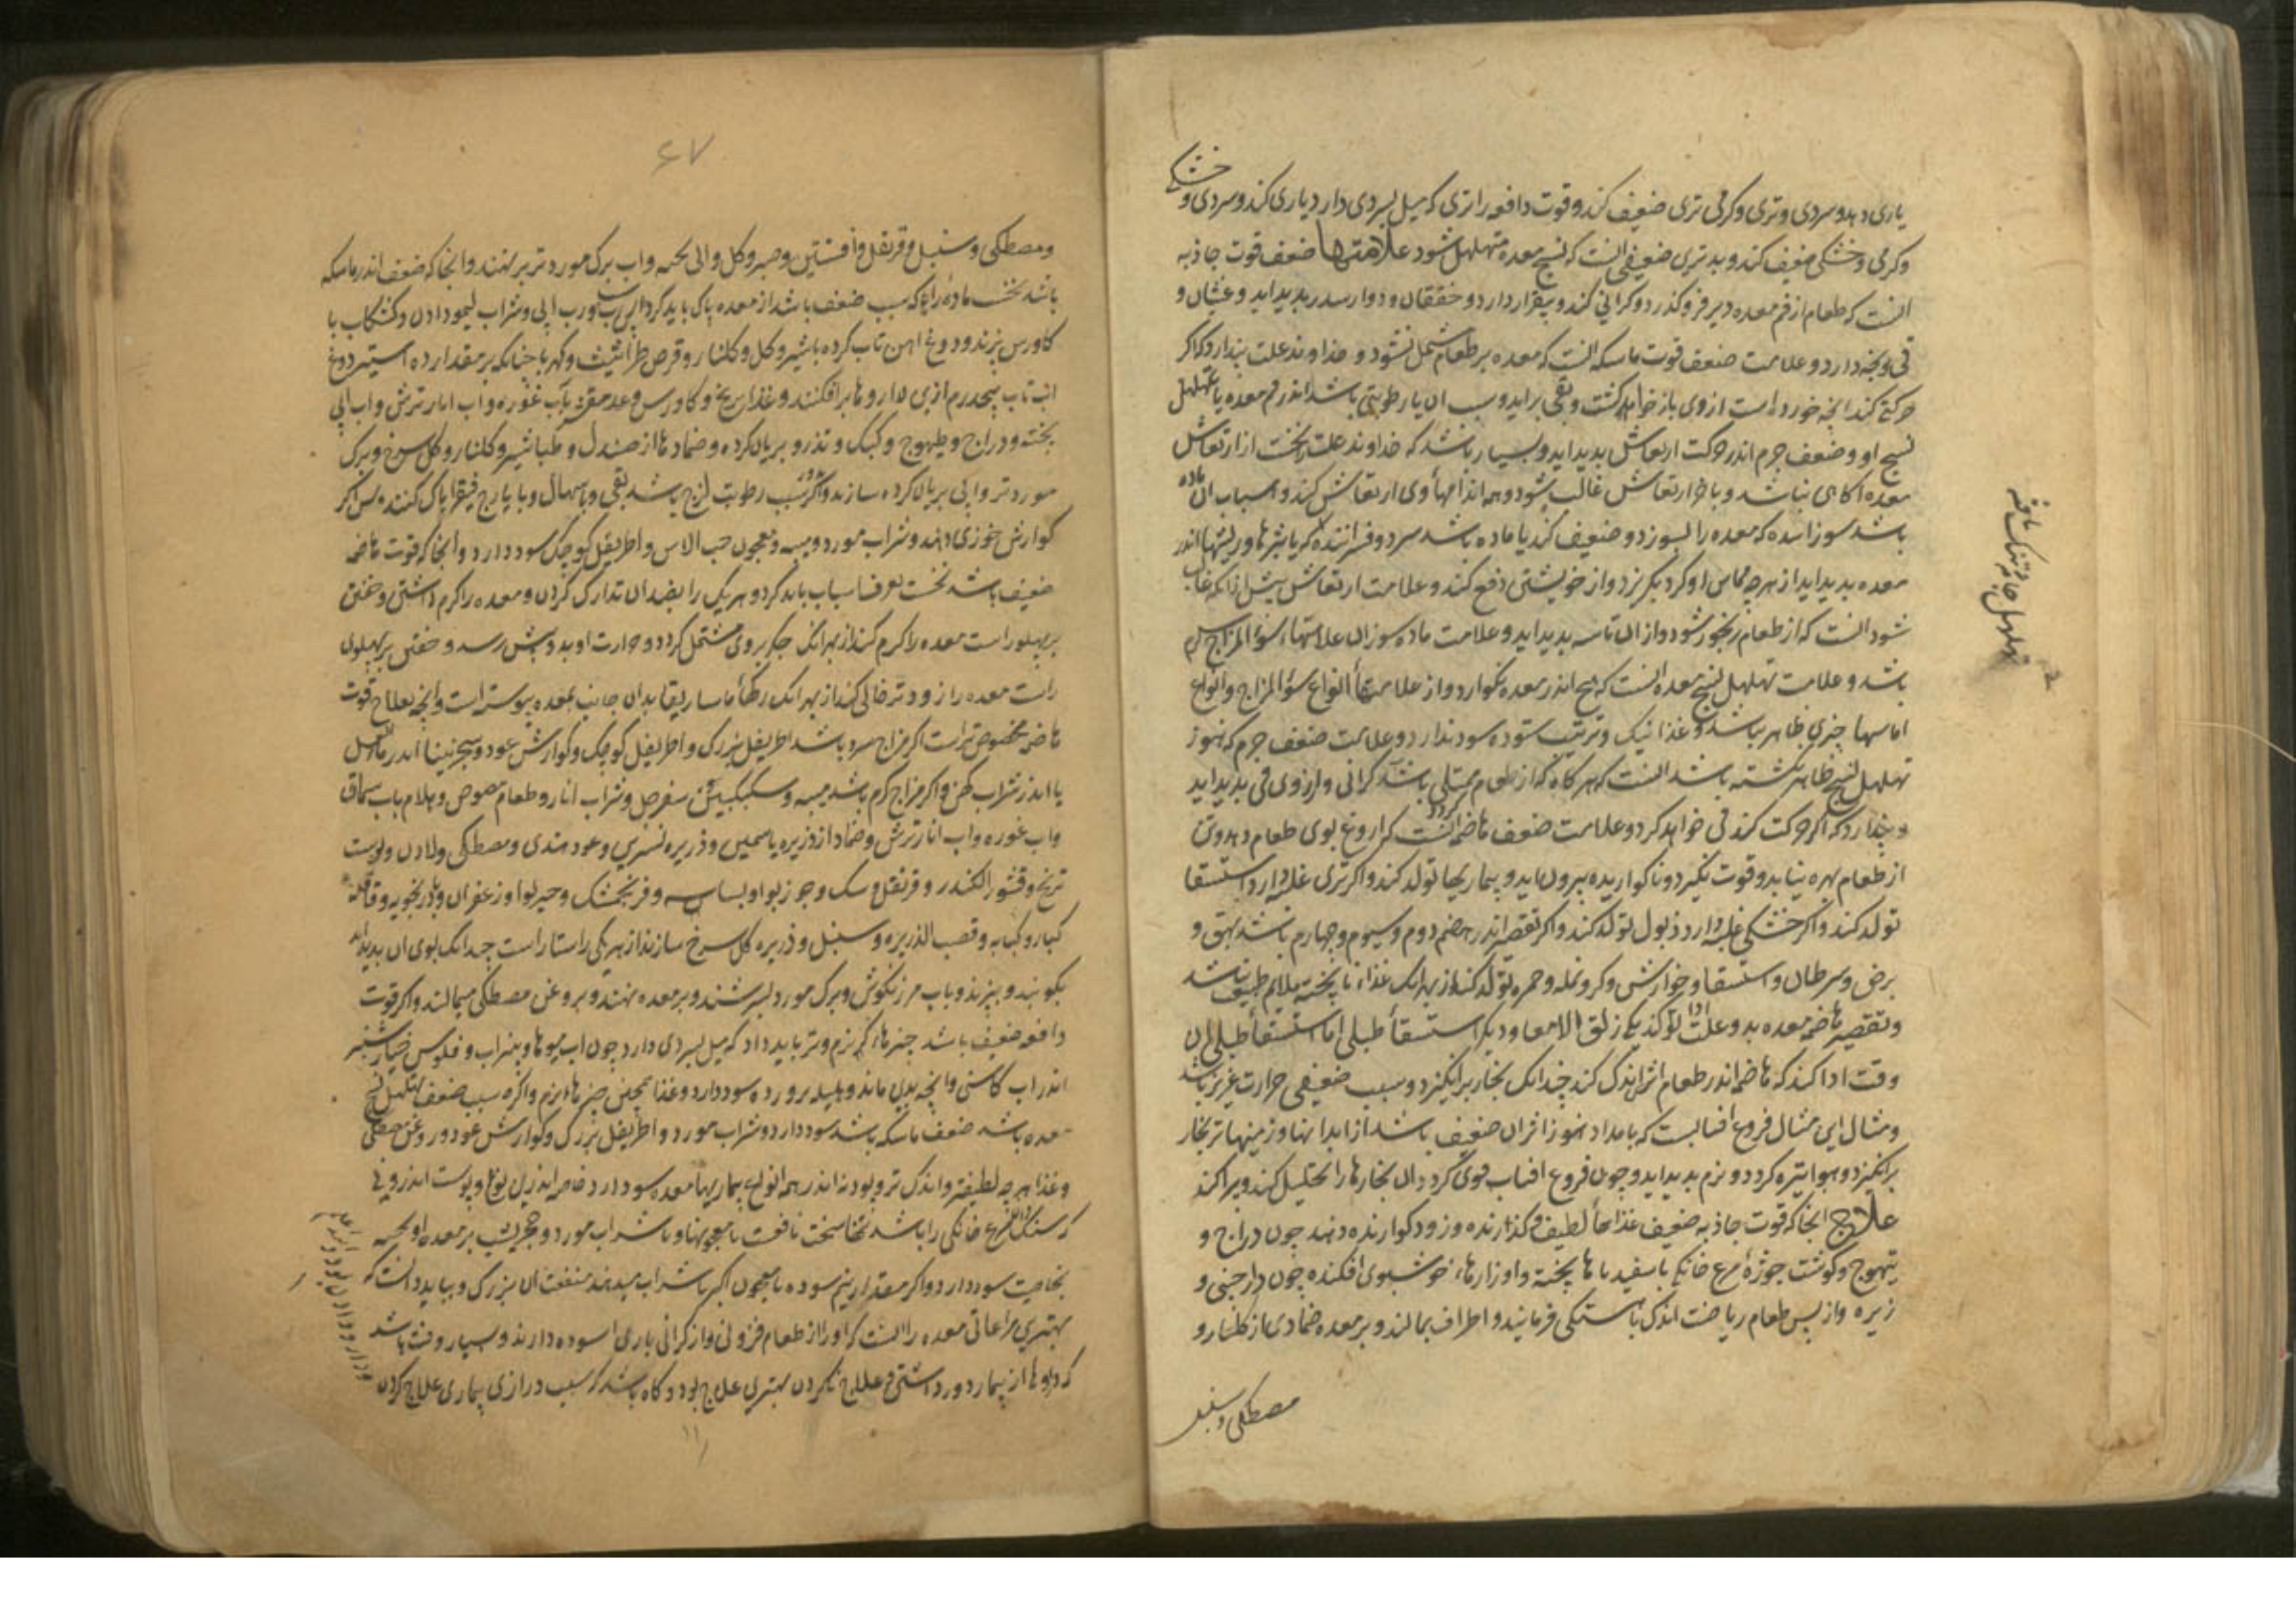 خشکی
یاری دهد و سردی و تری و گرمی تری ضعیف کند و قوت دافعه را تری که میل بسردی دارد یاری کند و سردی و
و گرمی و خشکی ضعیف کند و بدترین ضعیفی انست که نسج معده متهلهل شود علامتها ضعف قوت جاذبه
انست که طعام از فم معده دیر فرو گذرد و گرانی کند و بیقرار دارد و خفقان و دوار سدر پدید اید و غثیان و
قی رنجه دارد و علامت ضعف قوت ماسکه انست که معده بر طعام مشتمل نشود و خداوند علت پندارد که اگر
حرکتی کند انچه خورده است از وی باز خواهد گشت و بقی براید و سبب ان یا رطوبتی باشد اندر فم معده یا تهلهل
نسج او و ضعف جرم اندر حرکت ارتعاش پدید اید و بسیار باشد که خداوند علت نخست از ارتعاش
معده اگاهی نباشد و باخر ارتعاش غالب شود و همه اندامهاء وی ارتعاش کند و اسباب ان ماده
باشد سوزانده که معده را بسوزد و ضعیف کند یا ماده باشد سرد و فسراننده که یا بثرها و ریشها اندر
معده پدید اید از هرچه مماس او گردد بگریزد و از خویشتن دفع کند و علامت ارتعاش پیش از انکه غالب
شود انست که از طعام رنجور شود و از ان تاسه پدید اید و علامت ماده سوزان علامتهاء سوءالمزاج گرم
باشد و علامت تهلهل نسج معده انست که هیچ اندر معده نگوارد و از علامتهاء انواع سوءالمزاج و انواع
اماسها چیزی ظاهر نباشد و غذا نیک و ترتیب ستوده سود ندارد و علامت ضعف جرم که هنوز
تهلهل نسج ظاهر نگشته باشد انست که هرگاه که از طعام ممتلی باشد گرانی و ارزوی قی پدید اید
و پندارد که اگر حرکت کند قی خواهد کرد و علامت ضعف هاضمه انست که اروغ بوی طعام دهد و تن
از طعام بهره نیابد و قوت نگیرد و ناگواریده بیرون اید و بیماریها تولد کند و اگر تری غلبه دارد استسقا
تولد کند و اگر خشکی غلبه دارد ذبول تولد کند و اگر تقصیر اندر هضم دوم و سیوم و چهارم باشد بهق و
برص و سرطان و استسقا و خوارش و گر و نمله و حمره تولد کند از بهر انکه غذاء ناپخته ملایم طبع نباشد
و تقصیر هاضمه معده بدو علت ادا کند یکی زلق الامعا و دیگر استسقاء طبلی اما استسقاء طبلی ان
وقت ادا کند که هاضمه اندر طعام اثر اندک کند چندانک بخار برانگیزد و سبب ضعیفی حرارت غریزی باشد
و مثال این مثال فروغ افتابست که بامداد هنوز اثر ان ضعیف باشد از ابدانها و زمینها تر بخار
برانگیزد و هوا تیره گردد و نزم پدید اید و چون فروغ افتاب قوی گردد ان بخارها را تحلیل کند و پراگند
علاج انجا که قوت جاذبه ضعیف غذاهاء لطیف و گذارنده و زود گوارنده دهند چون دراج و
تیهوج و گوشت جوژه مرغ خانگی با سفیدباها پخته و اوزارهاء خوشبوی افکنده چون دارچینی و
زیره و از پس طعام ریاضت اندک باهستگی فرمایند و اطراف بمالند و بر معده ضمادی از گلنار و
مصطکی و سنبل
تهلهل جامه تنک بافته
۶۷
و مصطکی و سنبل و قرنفل و افسنتین و صبر و گل و اب برگ مورد تر بر نهند و انجا که ضعف اندر ماسکه
باشد نخست ماده را که سبب ضعف باشد از معده پاک باید کرد پس رب ابی و شراب لیمو دادن و کشکاب با
کاورس پزند و دوغ اهن تاب کرده با طباشیر و گل و گلنار و قرص طراثیث و کهربا چنانکه بر مقدار ده استیر دوغ
اهن تاب پنجدرم ازین داروها برافکنند و غذا برنج و کاورس و عدس مقشر باب غوره و اب انار ترش و اب ابی
پخته و دراج و طیهوج و کبک و تذرو بریان کرده و ضمادها از صندل و طباشیر و گلنار و گل سرخ و برگ
مورد تر و ابی بریان کرده سازند و اگر سبب رطوبت لزج باشد بقی و باسهال و بایارج فیقرا پاک کنند پس اگر
گوارش خوزی دهند و شراب مورد و میبه و معجون حب الاس و اطریفل کوچک سود دارد و انجا که قوت هاضمه
ضعیف باشد نخست تعرف اسباب باید کرد و هریک را بضد ان تدارک کردن و معده را گرم داشتن و خفتن
بر پهلو راست معده را گرم کند از بهر انک جگر بر وی مشتمل گردد و حرارت او بدو بیش رسد و خفتن بر پهلوی
راست معده را زودتر خالی کند از بهر انک رگهاء ماساریقا بدان جانب بمعده پیوسته است و انچه بعلاج قوت
هاضمه مخصوص تر است اگر مزاج سرد باشد اطریفل بزرگ و اطریفل کوچک و گوارش عود و سجزنیا اندر ماءالعسل
یا اندر شراب کهن و اگر مزاج گرم باشد میبه و سکنگبین سفرجل و شراب انار و طعام مصوص و هلام باب سماق
و اب غوره و اب انار ترش و ضماد از ذریره یاسمین و ذریره نسرین و عود هندی و مصطکی و لادن و پوست
ترنج و قشور الکندر و قرنفل و سک و جوز بوا و بسباسه و فرنجمشک و خیربوا و زعفران و بادرنجبویه و قاقله
کبار و کبابه و قصب الذریره و سنبل و ذریره گل سرخ سازند از هر یکی راستا راست چندانک بوی ان پدید اید
بکوبند و ببیزند و باب مرزنگوش و برگ مورد بسرشند و بر معده نهند و بروغن مصطکی میمالند و اگر قوت
دافعه ضعیف باشد چیزهاء نرم و تر باید داد که میل بسردی دارد چون اب میوها و شراب و فلوس خیارشنبر
اندر اب کاسنی و انچه بدین ماند و هلیله پرورده سود دارد و غذا همچنین چیزهاء نرم و اگر سبب ضعف تهلهل نسج
معده باشد ضعف ماسکه باشد سود دارد و شراب مورد و اطریفل بزرگ و گوارش عود و روغن مصطکی
و غذا هرچه لطیفتر و اندک تر و پودنه اندر همه انواع بیماریها معده سود دارد خاصه اندرین نوع و پوست اندرونی
که سنگدان مرغ خانگی را باشد سخت نافعست با معجونها و با شراب مورد و حجر یشب بر معده اویخته
بخاصیت سود دارد و اگر مقدار نیم سوده با معجون اگر با شراب میدهند منفعت ان بزرگ و بباید دانست که
بهترین مراعاتی معده را انست که او را از طعام فزونی و از گرانی باری اسوده دارند و بسیار وقت باشد
که داروها از بیمار دور داشتن و علاج ناکردن بهترین علاج بود و گاه باشد که سبب درازی بیماری علاج کردن